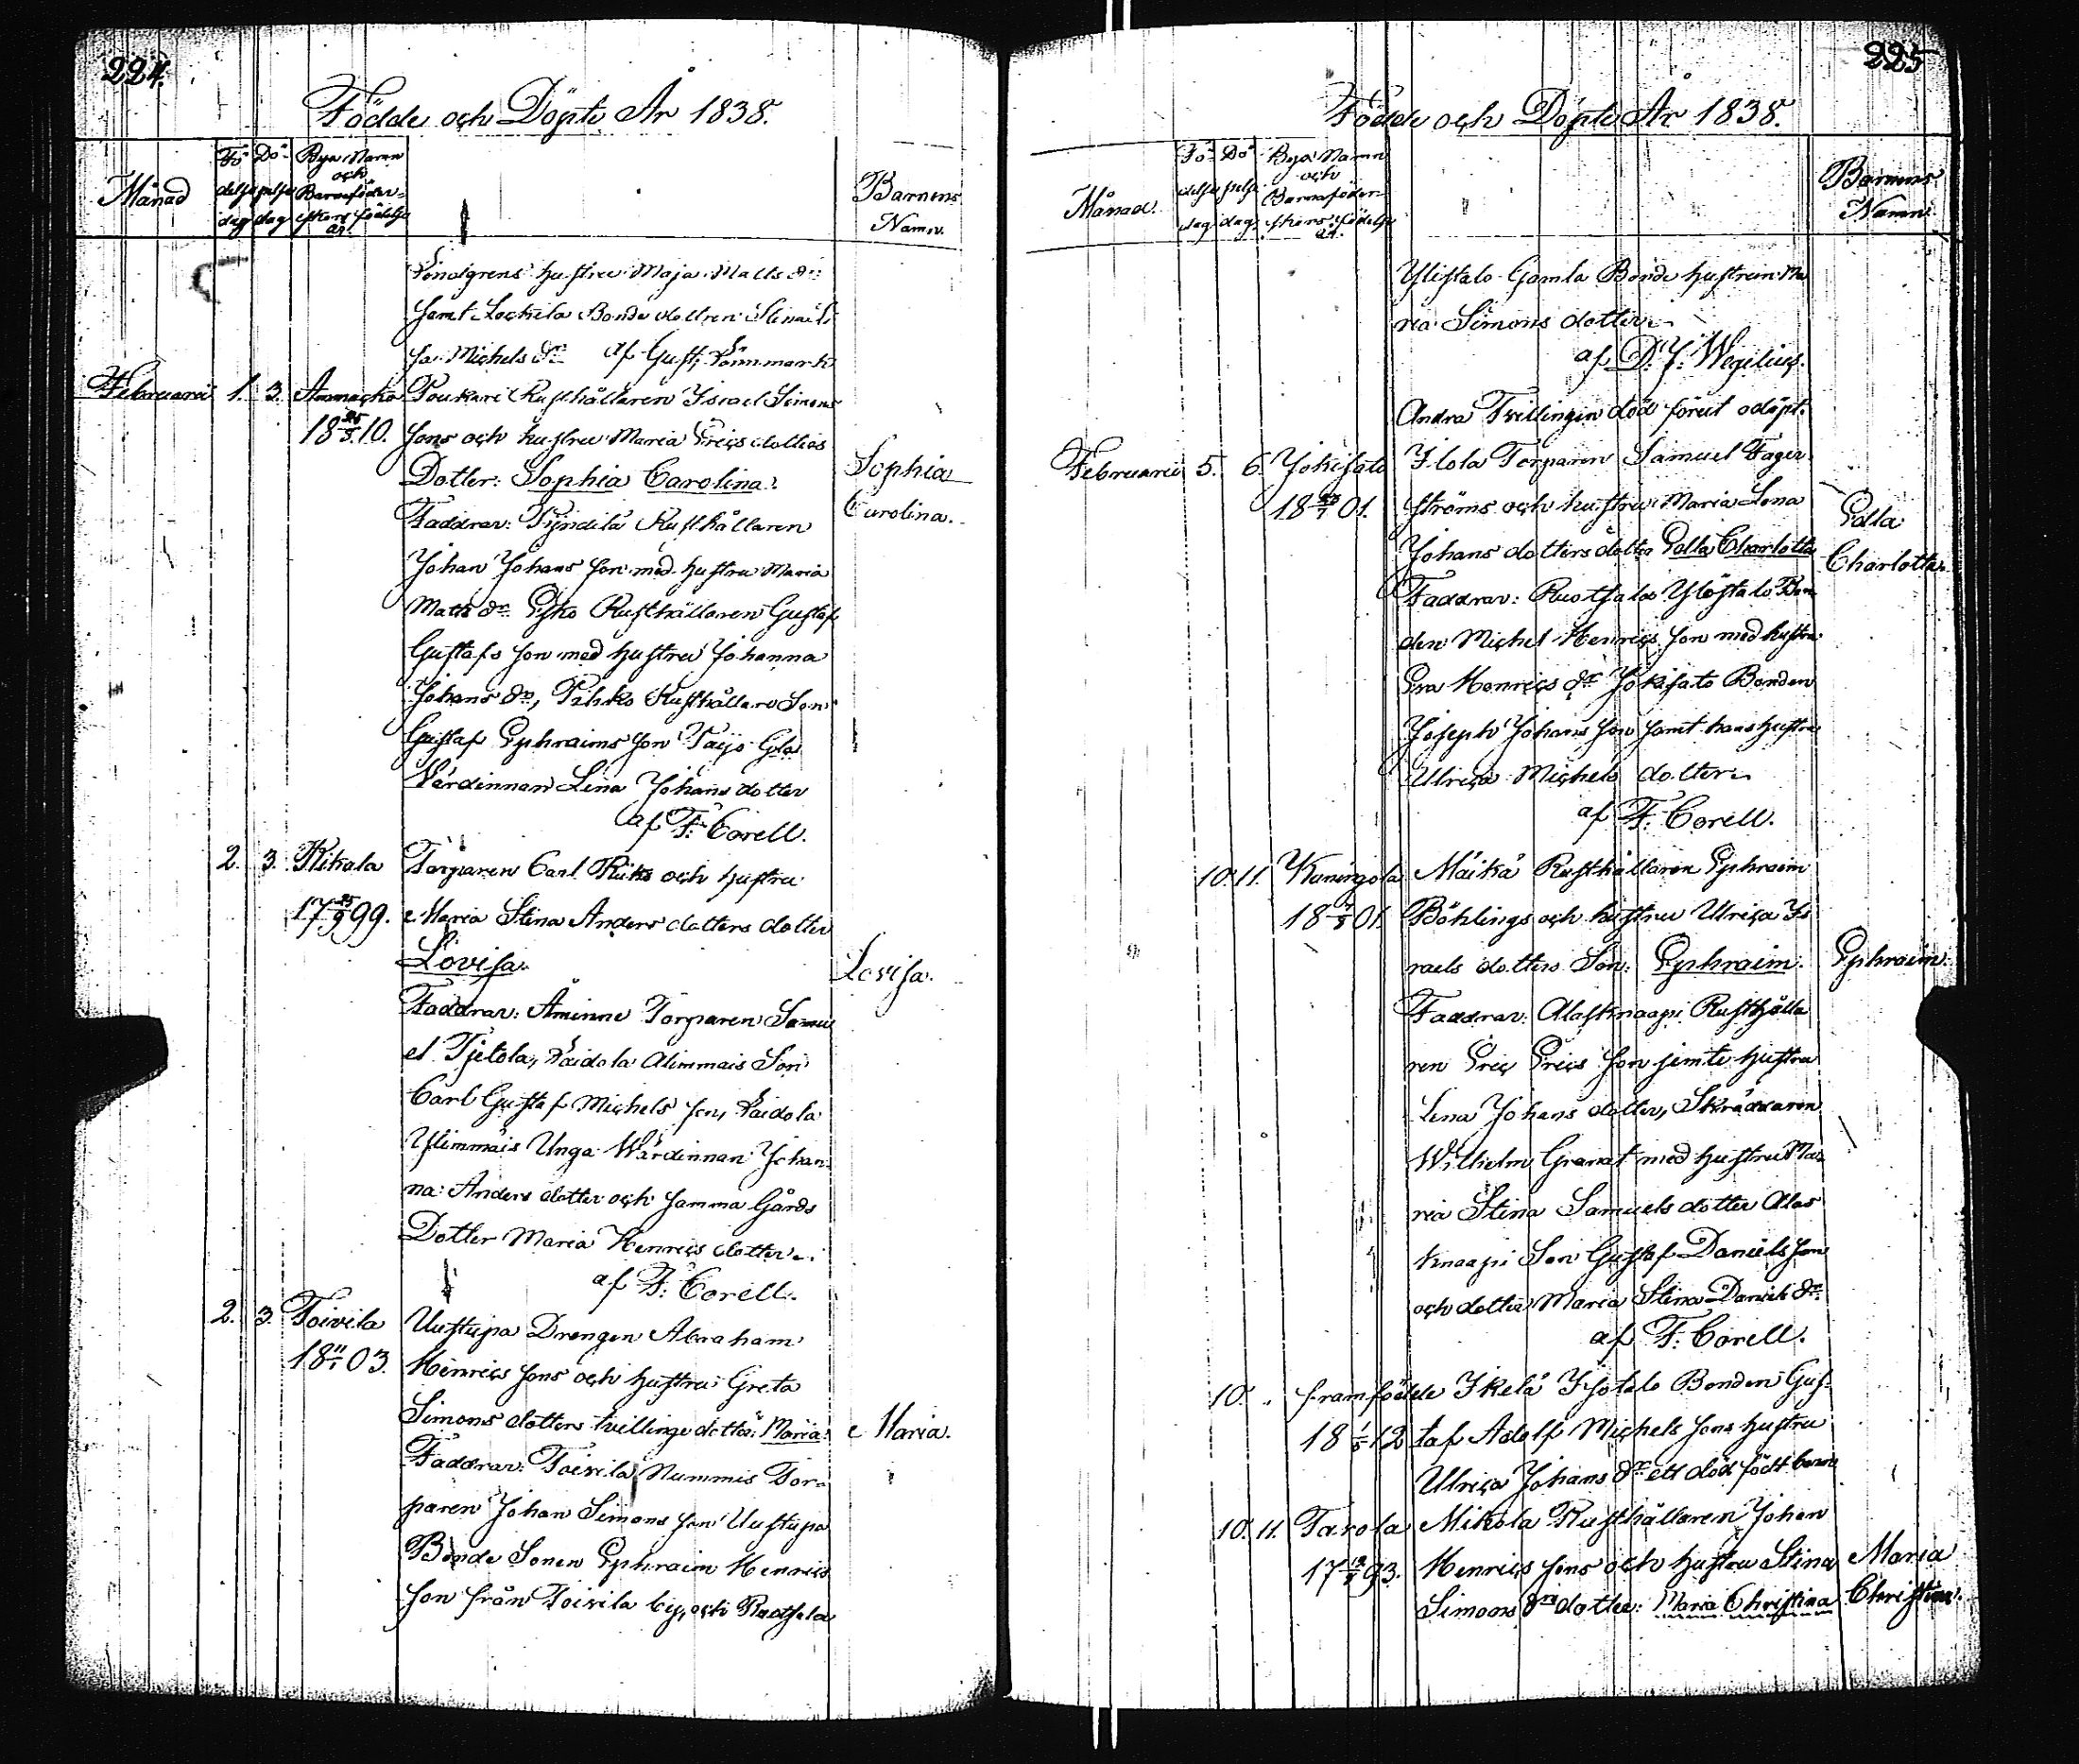 224.
Födde och Döpte År 1838.
Månad
Fö-delse dag
Dö-pelse dag
Bya Namn och Barnaföder-skans födelse år.
Barnens Namn.
hustru Maja Matts dr
samt Bonde dottren
sa Michels dr af Gust.
Februarii 1. 3. Ammaçko Poukari Rusthållaren Israel Simons
18 25/5 10. sons och hustru Maria Eriçs dotters
Dotter: Sophia Carolina. Sophia
Faddrar: Pyndilä Rusthållaren Carolina.
Johan Johans son med hustru Maria
Matts dr Rusthållaren Gustaf
Gustafs son med hustru Johanna
Johans dr, Pihko Rusthållare Son
Gustaf Ephraims son
Värdinnan Lena Johans dotter
af F. Corell.
2. 3. Kikala Torparen Carl och hustru
17 25/9 99. Maria Stina Anders dotters dotter
Lovisa. Lovisa.
Faddrar: Åminne Torparen Samu
el Vaidola Alimmais Son
Carl Gustaf Michels son, Vaidola
Ylimmäis Unga Wärdinnan Johan
na Anders dotter och samma Gårds
Dotter Maria Henriçs dotter.
af F. Corell.
2. 3. Toivila Uustupa Drengen Abraham
18 11/1 03. Henriçs sons och hustru Greta
Simons dotters tvillinge dotter: Maria. Maria.
Faddrar: Toivila Nummis Tor-
paren Johan Simons son Uustupa
Bonde Sonen Ephraim Henriçs
son från Toivila by, och Ruotsala
225
Födde och Döpte År 1838.
Månad.
Fö-delse dag
Dö-pelse dag
Bya Namn och Barnaföder-skans födelse år.
Barnens Namn.
Ylistalo Gamla Bonde hustrun Ma
ria Simons dotter.
af D. J. Wegelius.
Andra Tvillingen död förut odöpt.
Februarii 5. 6. Jokisato Ilola Torparen Samuel Fager
18 01. ströms och hustru Maria Lena Edla
Johans dotters dotter Edla Charlotta Charlotta.
Faddrar: Ruotsala Ylöstalo Bon
den Michel Henriçs son med hustru
Eva Henriçs dr Jokisato Bonden
Joseph Johans son samt hans hustru
Ulriça Michels dotter.
af F. Corell.
10. 11. Kuningola Mäikä Rusthållaren Ephraim
18 01. Böhlings och hustru Ulriça Is
raels dotters Son: Ephraim. Ephraim.
Faddrar: Alasknaapi Rusthålla
ren Eriç Eriçs son jemte hustru
Lena Johans dotter, Skräddaren
Wilhelm Granat med hustru Ma
ria Stina Samuels dotter Alas
knaapi Son Gustaf Daniels son
och dotter Maria Stina Daniels dr
af F. Corell.
10. framfödde Ikelä Isotalo Bonden Gus-
18 1/5 12 taf Adolf Michels sons hustru
Ulriça Johans dr ett död födt barn
10. 11. Tarola Mikola Rusthållaren Johan
17 93. Henriçs sons och hustru Stina Maria
Simons drs dotter: Maria Christina Christina.